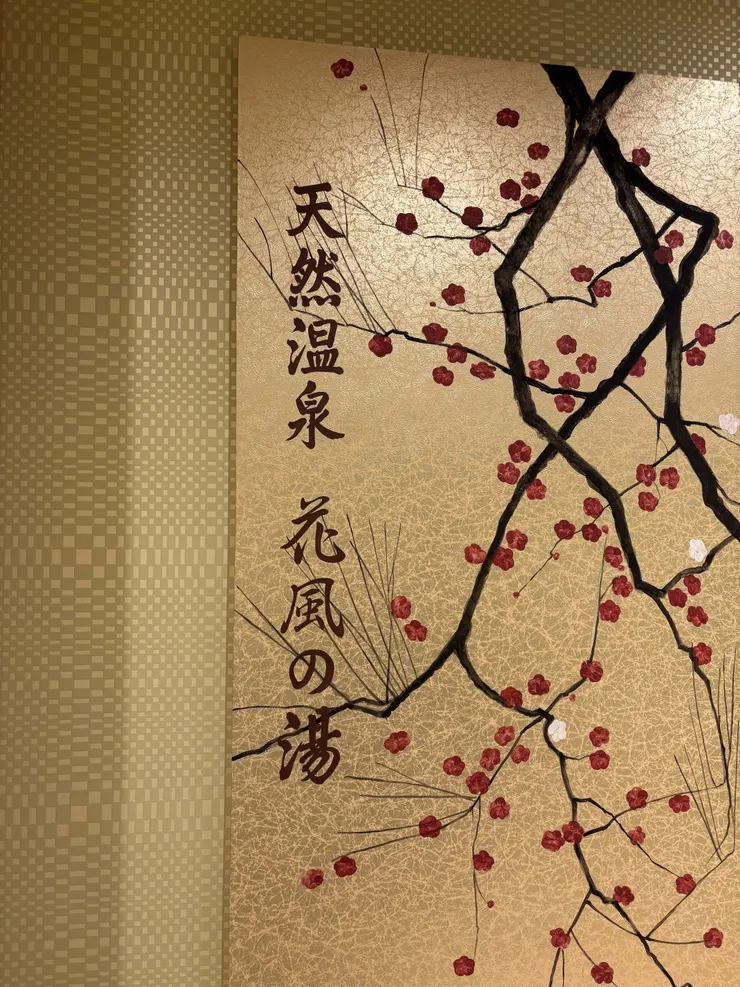 天然温泉　花風の湯